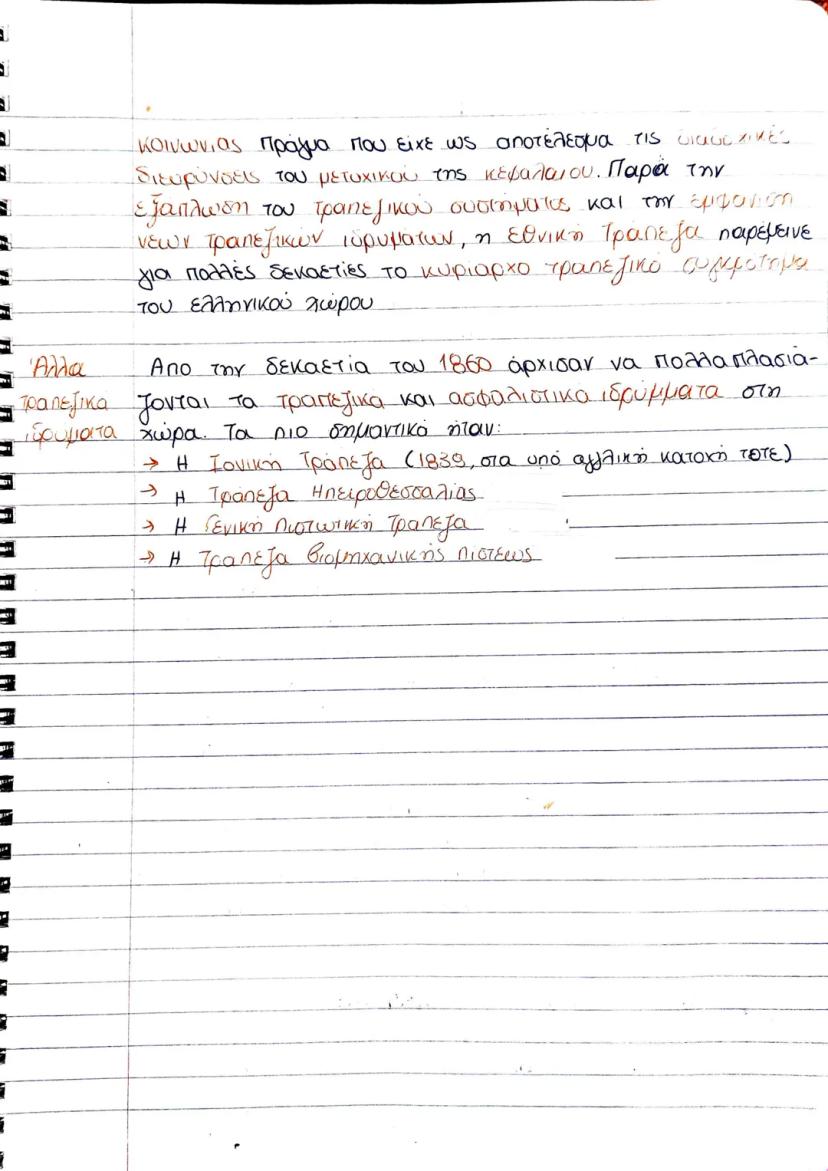 κοινωνίας πράγμα που είχε ως αποτέλεσμα τις διαδοχικές
διευρύνσεις του μετοχικού της κεφαλαίου. Παρά την
εξάπλωση του τραπεζικού συστήματος και την εμφάνιση
νέων τραπεζικών ιδρυμάτων, η εθνική Τράπεζα παρέμεινε
για πολλές δεκαετίες το κυρίαρχο τραπεζικό συγκρότημα
του ελληνικού χώρου
Άλλα
τραπεζικά
ιδρύματα
Απο την δεκαετία του 1860 άρχισαν να πολλαπλασιά-
ζονται τα τραπεζικα και ασφαλιστικα ιδρύμματα στη
χώρα. Τα πιο σημαντικά ήταν:
→ Η Ιονική Τράπεζα (1839, στα υπό αγγλική κατοχή τότε)
→ Η Τράπεζα Ηπειροθεσσαλίας
→ Η Γενική Πιστωτική Τράπεζα
→ Η Τράπεζα Βιομηχανικής Πίστεως